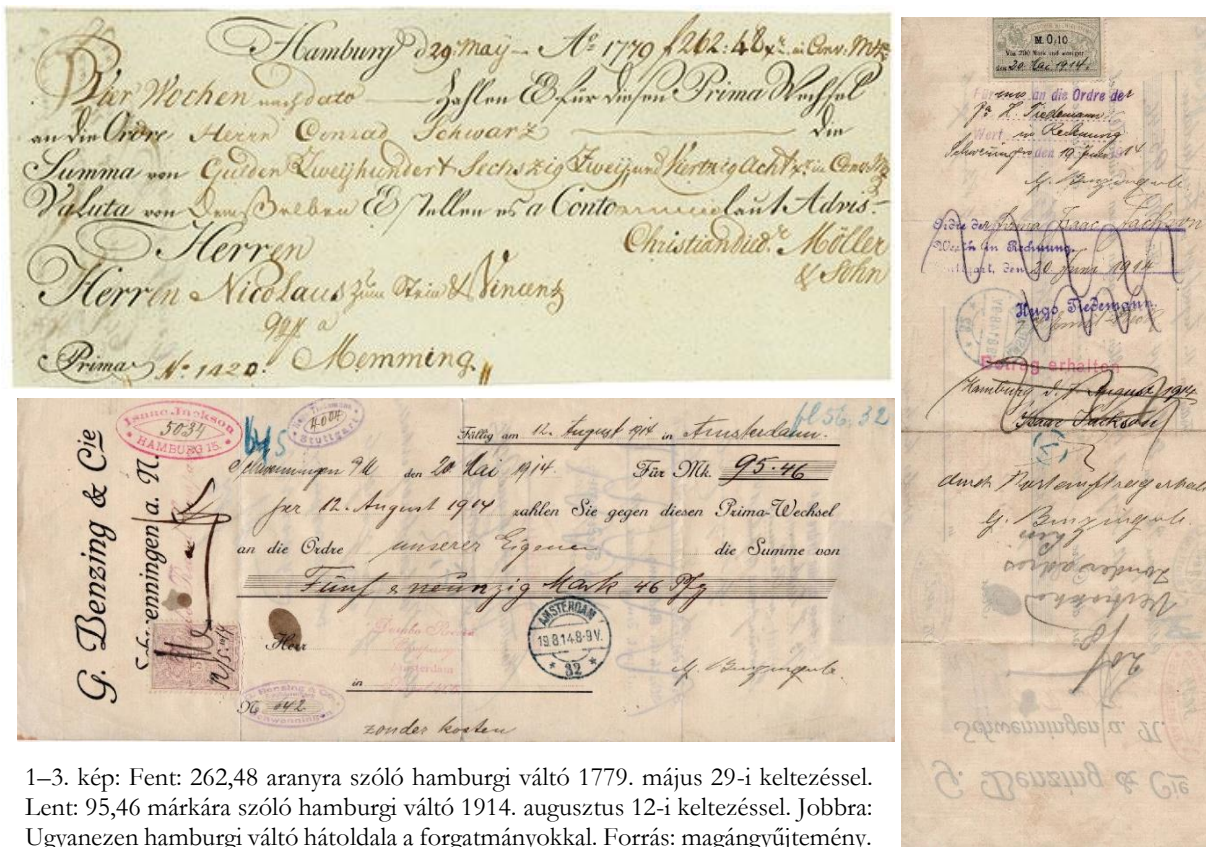 Hamburg d 29: May A:° 1770 f 262:48 xr in Conv: Mze
Vier Wochen nach dato Zahlen E für diesen Prima Wechsel
an die Ordre Herrn Conrad Schwarz die
Summa von Gulden Zweyhundert Sechszig Zwey und Viertzig Acht xr in Conv:
Valuta von demselben E stellen es a Conto laut Advis.
Christian died. Möller
& Sohn
Herren
Herren Nicolaus zum Stein & Vincentz
a
Prima N:° 1420. Memming
Isaac Jackson
5034
HAMBURG 15.
4004
Stuttgart
fl 56,32
Fällig am 12. August 1914 in Amsterdam.
Schwenningen a/N den 20. Mai 1914. Für Mk. 95.46
per 12. August 1914 zahlen Sie gegen diesen Prima-Wechsel
an die Ordre unserer Eigenen die Summe von
Fünf & neunzig Mark 46 Pfg
Herr
in
AMSTERDAM
19.8.14.8-9V.
32
No 642
zonder kosten
G. Benzing & Cie
Schwenningen a. N.
M. 0,10
20. Mai 1914
an die Ordre der
H. Tiedemann
Wert in Rechnung
Schwenningen den 19. Juni 14
Ordre der Firma Isaac Jackson
Werth in Rechnung.
Stuttgart, den 20 Juni 1914
Hugo Tiedemann.
Betrag erhalten
Hamburg d. August 1914
Isaac Jackson
G. Benzing & Cie
Schwenningen a. N.
1–3. kép: Fent: 262,48 aranyra szóló hamburgi váltó 1779. május 29-i keltezéssel.
Lent: 95,46 márkára szóló hamburgi váltó 1914. augusztus 12-i keltezéssel. Jobbra:
Ugyanezen hamburgi váltó hátoldala a forgatmányokkal. Forrás: magángyűjtemény.